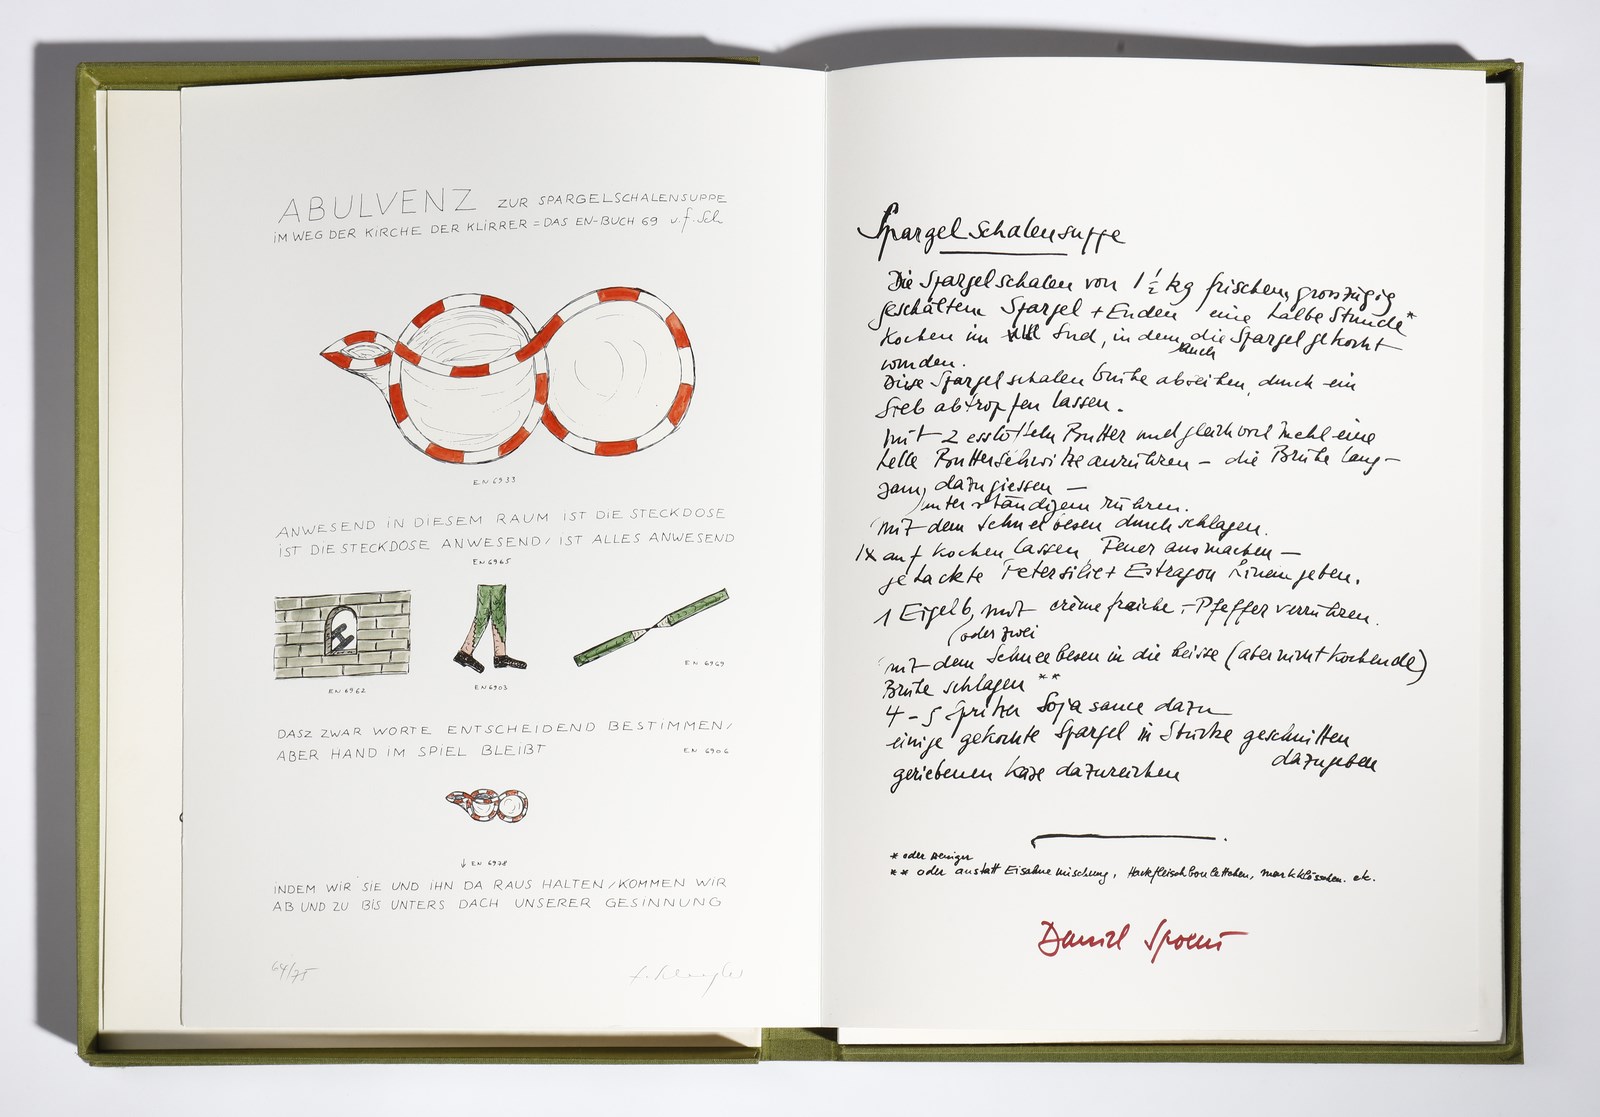 ABULVENZ ZUR SPARGELSCHALENSUPPE
IM WEG DER KIRCHE DER KLIRRER = DAS EN-BUCH 69 v. f. Sch
EN 6933
ANWESEND IN DIESEM RAUM IST DIE STECKDOSE
IST DIE STECKDOSE ANWESEND / IST ALLES ANWESEND
EN 6965
EN 6962
EN 6903
EN 6969
DASZ ZWAR WORTE ENTSCHEIDEND BESTIMMEN /
ABER HAND IM SPIEL BLEIBT
EN 6906
↓ EN 6928
INDEM WIR SIE UND IHN DA RAUS HALTEN / KOMMEN WIR
AB UND ZU BIS UNTERS DACH UNSERER GESINNUNG
64/75
Spargelschalensuppe
Die Spargelschalen von 1 ½ kg frischem, grosszügig
geschältem Spargel + Enden eine halbe Stunde*
kochen im Sud, in dem die Spargel gekocht
auch
wurden.
Diese Spargelschalenbrühe abseihen, durch ein
Sieb abtropfen lassen.
mit 2 esslöffeln Butter und gleichviel Mehl eine
helle Butterschwitze anrühren – die Brühe lang-
sam, dazugiessen –
unter ständigem rühren.
mit dem Schneebesen durchschlagen.
1x aufkochen lassen, Feuer ausmachen –
gehackte Petersilie + Estragon hineingeben.
1 Eigelb, mit crème fraiche + Pfeffer verrühren.
(oder zwei
mit dem Schneebesen in die heisse (aber nicht kochende)
Brühe schlagen **
4 – 5 Spritzer Sojasauce dazu
einige gekochte Spargel in Stücke geschnitten
dazugeben
geriebenen Käse dazureichen
* oder weniger
** oder anstatt Eisahnemischung, Hackfleischbouletten, markklösschen. etc.
Daniel Spoerri